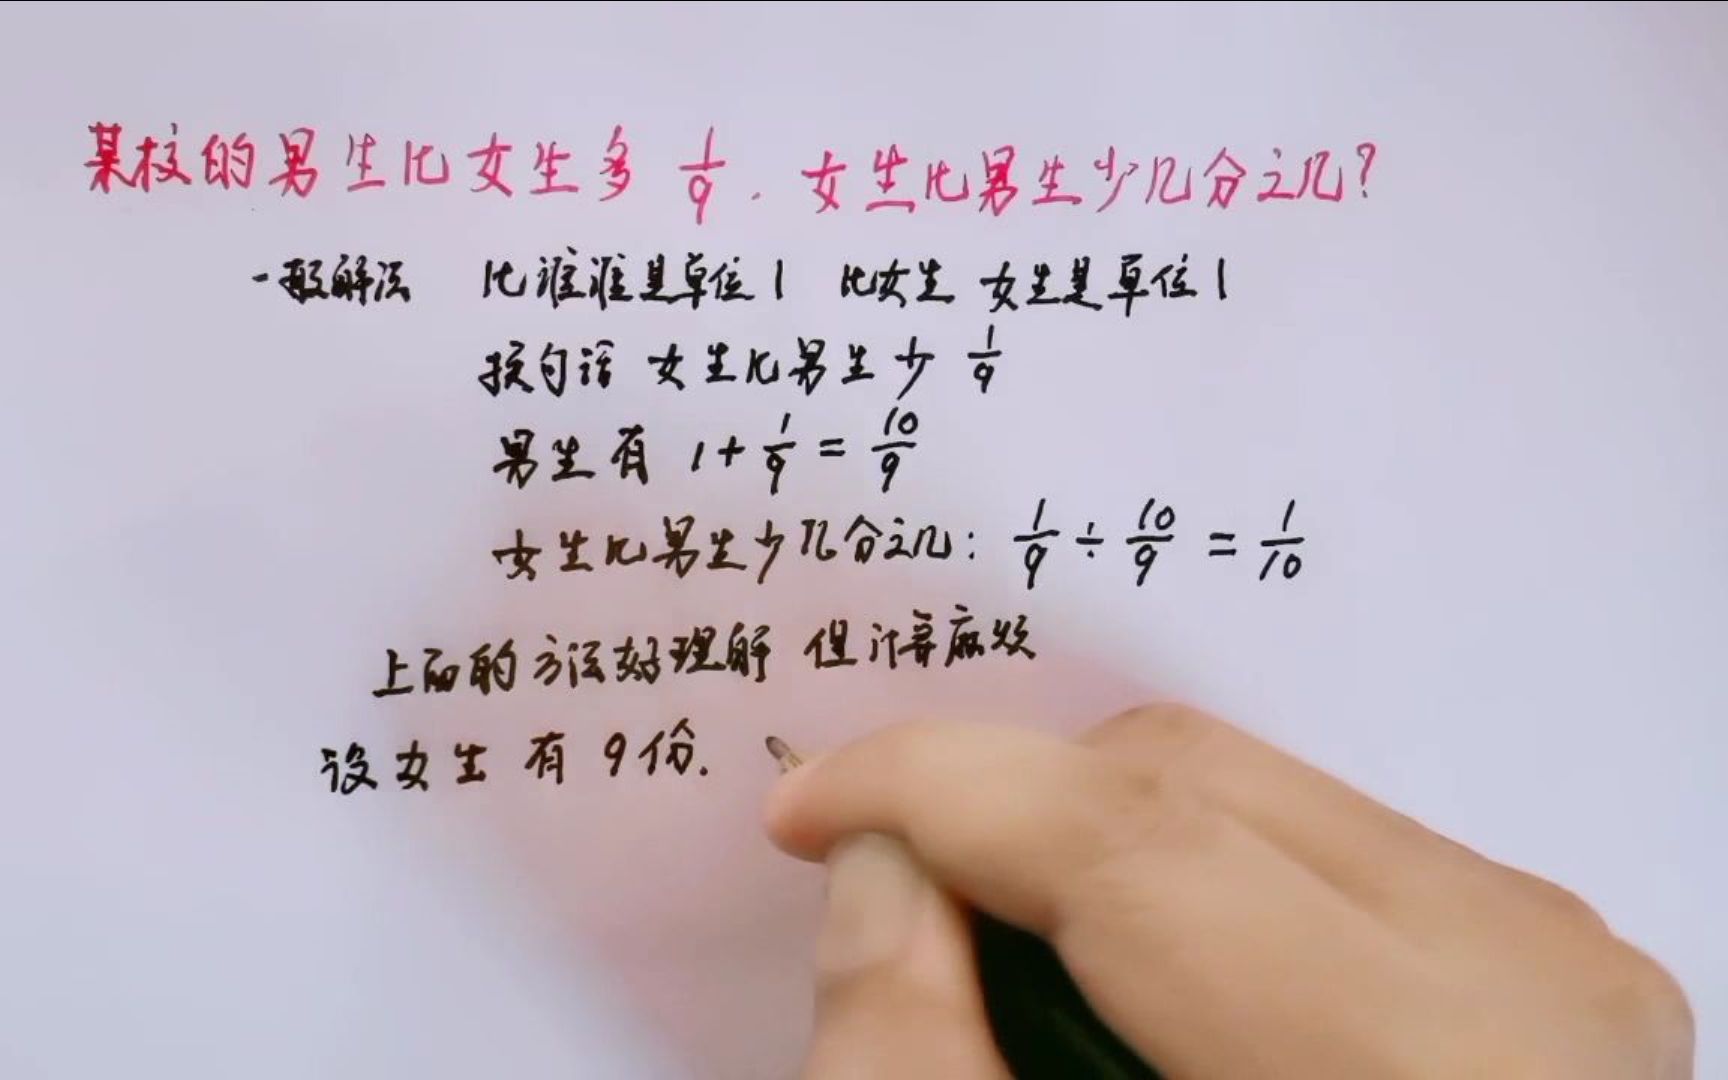 某校的男生比女生多 1/9 . 女生比男生少几分之几?
一般解法 比谁谁是单位1 比女生 女生是单位1
换句话 女生比男生少 1/9
男生有 1+1/9=10/9
女生比男生少几分之几: 1/9÷10/9=1/10
上面的方法好理解 但计算麻烦
设女生有9份.